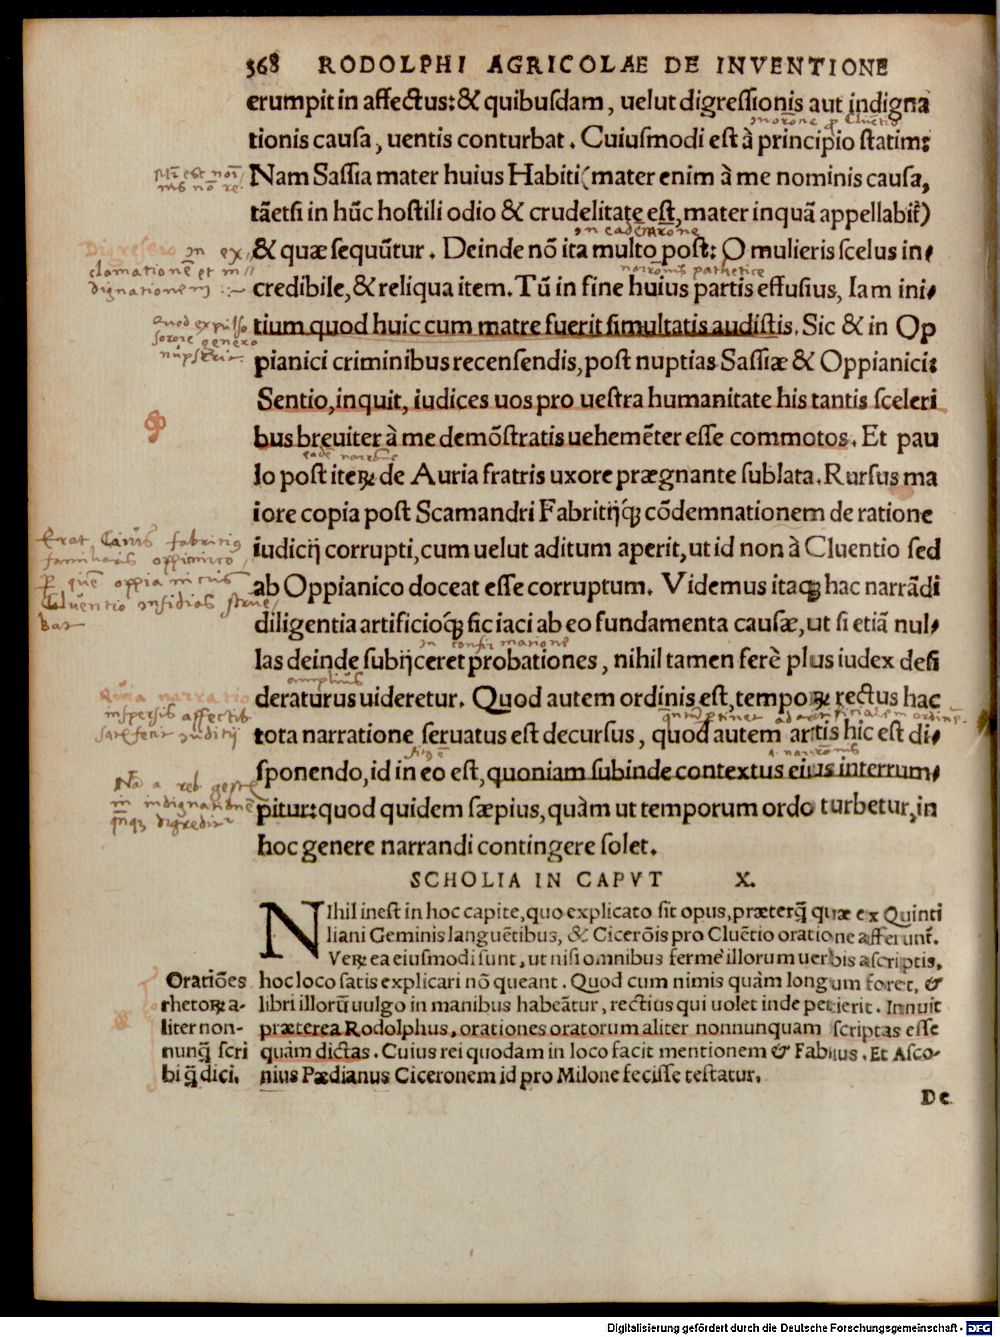 368 RODOLPHI AGRICOLAE DE INVENTIONE
erumpit in affectus: & quibusdam, uelut digressionis aut indigna
tionis causa, uentis conturbat. Cuiusmodi est à principio statim:
Nam Sassia mater huius Habiti (mater enim à me nominis causa,
tāetsi in hūc hostili odio & crudelitate est, mater inquā appellabiť)
& quæ sequūtur. Deinde nō ita multo post: O mulieris scelus in,
credibile, & reliqua item. Tū in fine huius partis effusius, Iam ini,
tium quod huic cum matre fuerit simultatis audistis. Sic & in Op
pianici criminibus recensendis, post nuptias Sassiæ & Oppianici:
Sentio, inquit, iudices uos pro uestra humanitate his tantis sceleri
bus breuiter à me demōstratis uehemēter esse commotos. Et pau
lo post iteꝝ de Auria fratris uxore prægnante sublata. Rursus ma
iore copia post Scamandri Fabritijq́ꝫ cōdemnationem de ratione
iudicij corrupti, cum uelut aditum aperit, ut id non à Cluentio sed
ab Oppianico doceat esse corruptum. Videmus itaqꝫ hac narrādi
diligentia artificioq́ꝫ sic iaci ab eo fundamenta causæ, ut si etiā nul,
las deinde subijceret probationes, nihil tamen ferè plus iudex desi
deraturus uideretur. Quod autem ordinis est, tempoꝝ rectus hac
tota narratione seruatus est decursus, quod autem artis hic est di,
sponendo, id in eo est, quoniam subinde contextus eius interrum,
pitur: quod quidem sæpius, quàm ut temporum ordo turbetur, in
hoc genere narrandi contingere solet.
Digressio in ex,
clamatione et in
dignationem
Quod expulso
sorore genero
Erat Caius fabritius
familiaris oppianico,
Cluentio insidias strue,
bat
Quia narratio
inspersis affectib
SCHOLIA IN CAPVT X.
NIhil inest in hoc capite, quo explicato sit opus, præterq̄ quæ ex Quinti
liani Geminis languētibus, & Cicerōis pro Cluētio oratione afferunť.
Veꝝ ea eiusmodi sunt, ut nisi omnibus fermè illorum uerbis ascriptis,
hoc loco satis explicari nō queant. Quod cum nimis quàm longum foret, &
libri illorū uulgo in manibus habeātur, rectius qui uolet inde petierit. Innuit
præterea Rodolphus, orationes oratorum aliter nonnunquam scriptas esse
quàm dictas. Cuius rei quodam in loco facit mentionem & Fabius. Et Asco-
nius Pædianus Ciceronem id pro Milone fecisse testatur.
Oratiōes
rhetoꝝ a-
liter non-
nunq̄ scri
bi q̄ dici.
De
Digitalisierung gefördert durch die Deutsche Forschungsgemeinschaft - DFG